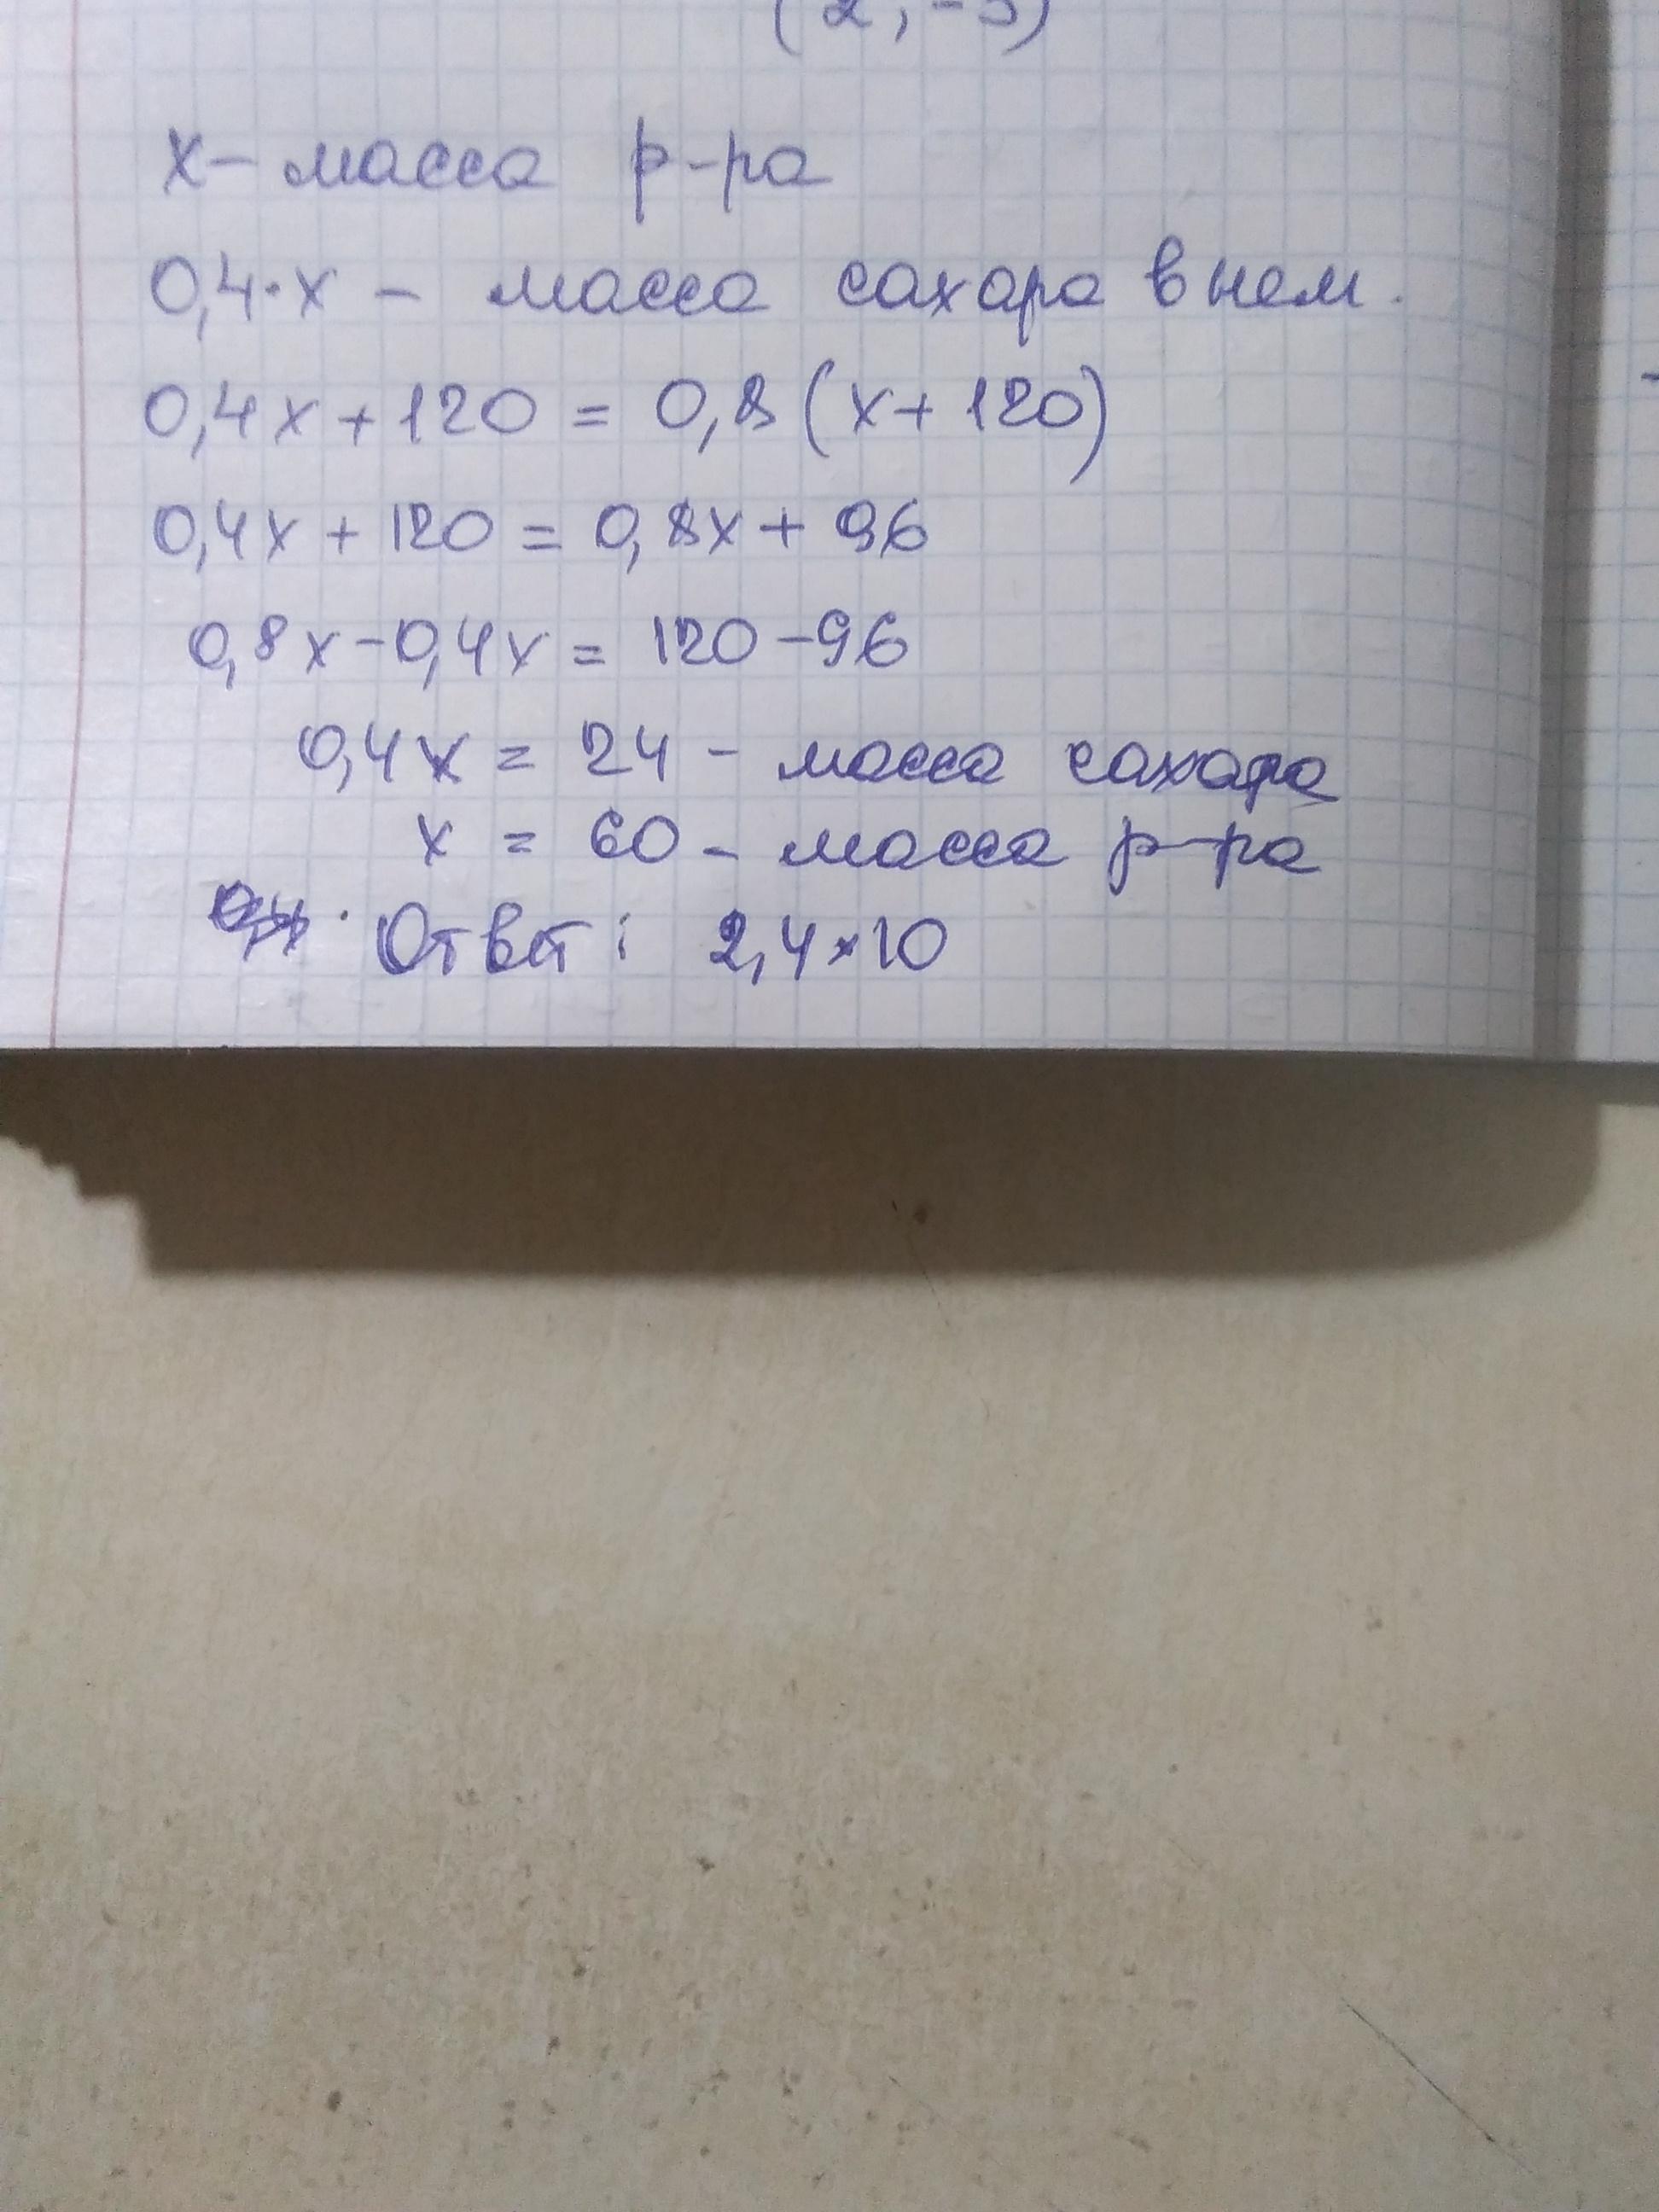 (2; -3)
x - масса р-ра
0,4·x - масса сахара в нем.
0,4x + 120 = 0,8 (x + 120)
0,4x + 120 = 0,8x + 96
0,8x - 0,4x = 120 - 96
0,4x = 24 - масса сахара
x = 60 - масса р-ра
Ответ: 2,4×10